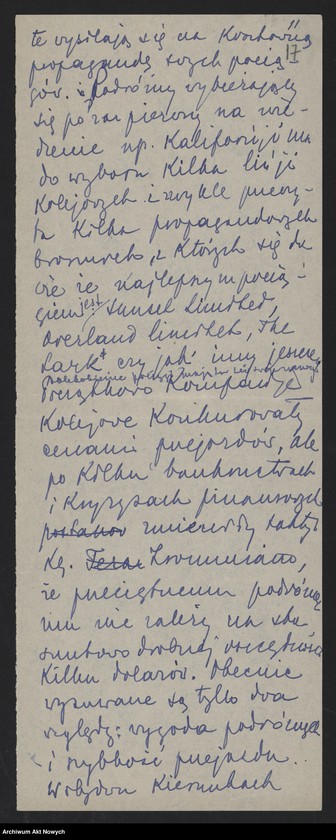 te wysilają się na kosztowną
17
propagandę swych pocią-
gów. Podróżny wybierający
się po raz pierwszy na zwie-
dzenie np. Kalifornji ma
do wyboru kilka linji
kolejowych i zwykle przeczy-
ta kilka propagandowych
broszurek, z których się do
wie że najlepszym pocią-
giem jest: Sunset Limited,
Overland Limited, The
Lark* czy jakiś inny jeszcze.
Początkowo kompanje
kolejowe konkurowały
cenami przejazdów, ale
po kilku bankructwach
i kryzysach finansowych
postanow zmieniły takty-
kę. Teraz Zrozumiano,
że przeciętnemu podróżne-
mu nie zależy na sto
sunkowo drobnej oszczędności
kilku dolarów. Obecnie
wysuwane są tylko dwa
względy: wygoda podróżnych
i szybkość przejazdu.
W obydwu kierunkach
Archiwum Akt Nowych